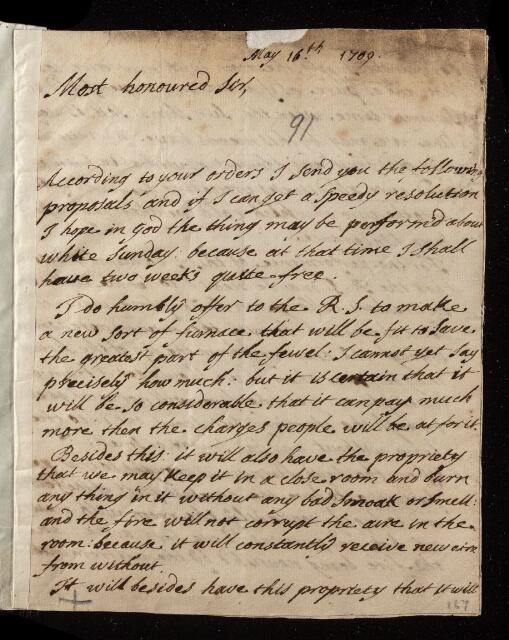 May 16.th 1709.
Most honoured Sir,
91
According to your orders I send you the following
proposals and if I can get a speedy resolution
I hope in God the thing may be perform'd about
white Sunday: because at that time I shall
have two weeks quite free.
I do humbly offer to the R. S. to make
a new sort of furnace that will be fit to save
the greatest part of the fewel: I cannot yet say
precisely how much: but it is certain that it
will be so considerable that it can pay much
more then the charges people will be at for it.
Besides this it will also have the propriety
that we may keep it in a close room and burn
any thing in it without any bad smoak or smell:
and the fire will not corrupt the aire in the
room: because it will constantly receive new aire
from without.
It will besides have this propriety that it will
167